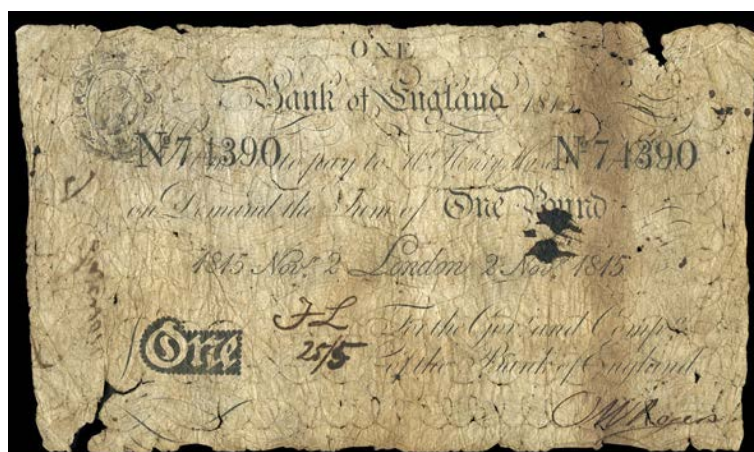 ONE
Bank of England 181
Nº 74390 to pay to Mr. Henry Hase Nº 74390
on Demand the Sum of One Pound
1815 Nov.r 2 London 2 Nov.r 1815
For the Gov.r and Comp.a
One
of the Bank of England
F L
25/5